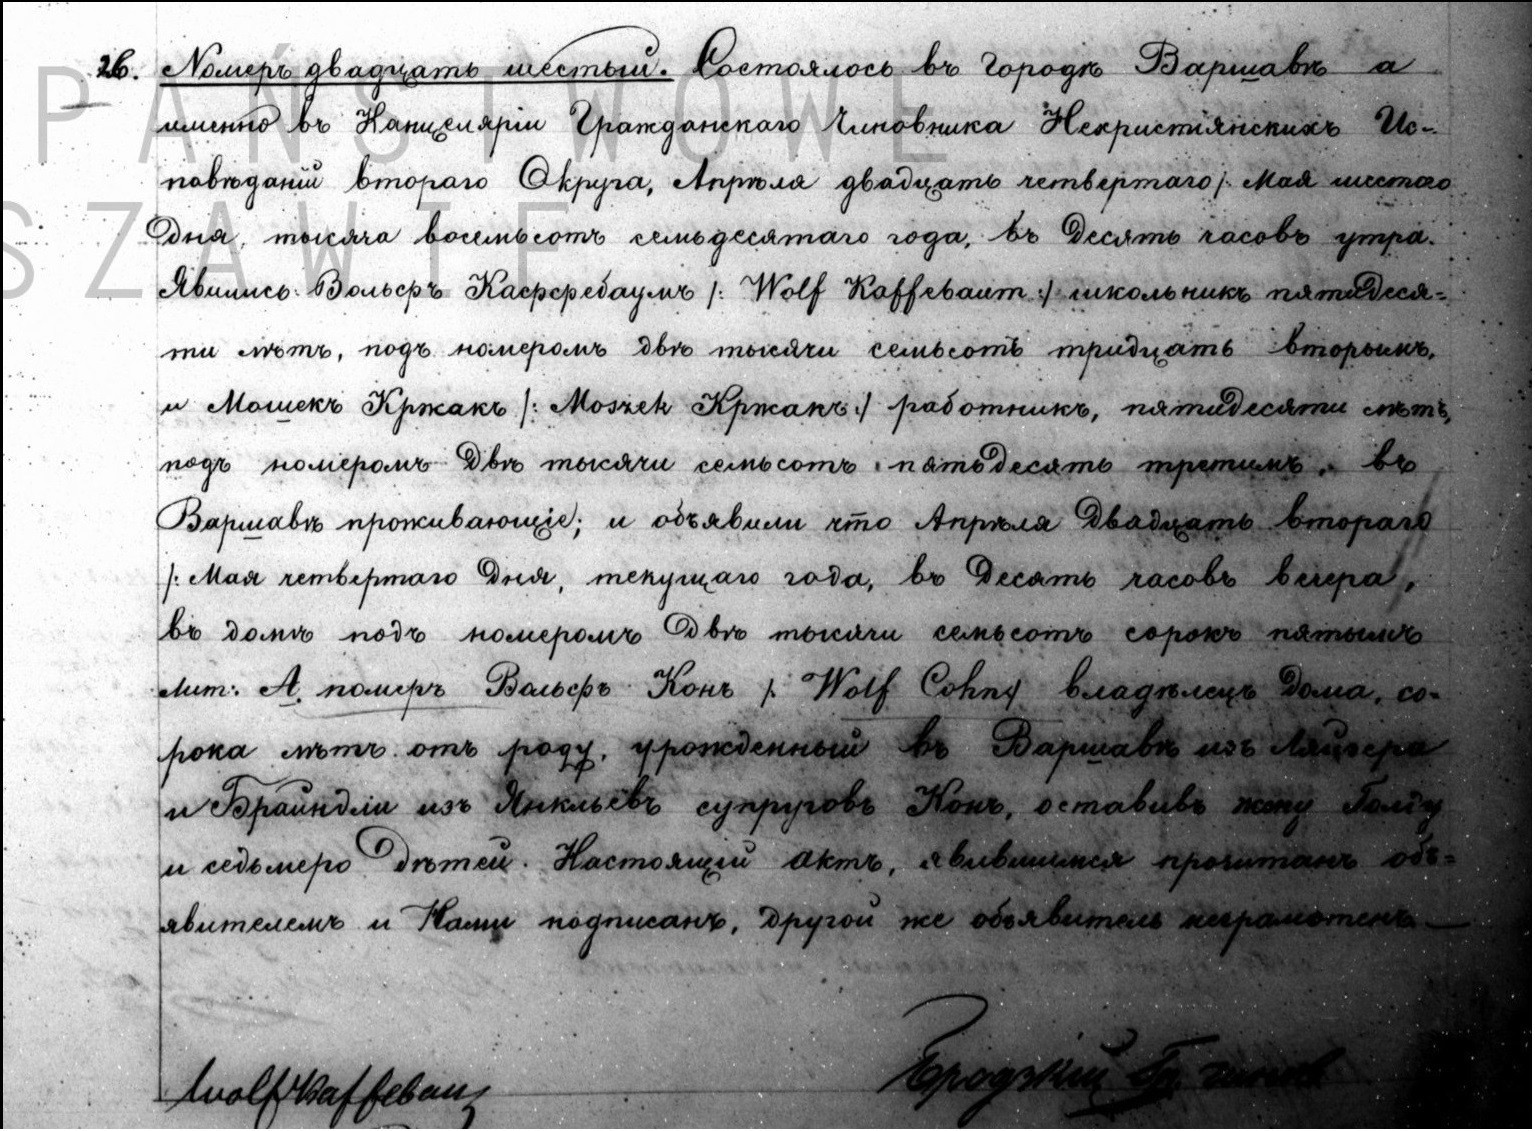 PAŃSTWOWE
SZAWIE
26. Номеръ двадцать шестый. Состоялось въ городѣ Варшавѣ а
именно въ Канцеляріи Гражданскаго Чиновника Нехристіянскихъ Ис-
повѣданій втораго Округа, Апрѣля двадцать четвертаго /: Мая шестаго
Дня, тысяча восемьсотъ семьдесятаго года, въ Десять часовъ утра.
Явились: Вольфъ Каффебаумъ /: Wolf Kaffebaum :/ школьникъ пятидеся=
ти лѣтъ, подъ номеромъ двѣ тысячи семьсотъ тридцать вторымъ,
и Мошекъ Кржакъ /: Moszek Кржакъ :/ работникъ, пятидесяти лѣтъ,
подъ номеромъ Двѣ тысячи семьсотъ пятьдесятъ третимъ, въ
Варшавѣ проживающіе; и объявили что Апрѣля Двадцать втораго
/: Мая четвертаго Дня, текущаго года, въ Десять часовъ вечера,
въ домѣ подъ номеромъ Двѣ тысячи семьсотъ сорокъ пятымъ
Лит: А. померъ Вольфъ Конъ /: Wolf Cohn :/ владѣлецъ Дома, со-
рока лѣтъ отъ роду, урожденный въ Варшавѣ изъ Ляйзера
и Брайндли изъ Янкльевъ супруговъ Конъ, оставивъ жену Голду
и седьмеро Дѣтей. Настоящій актъ, явившимся прочитанъ объ=
явителемъ и Нами подписанъ, другой же объявитель неграмотенъ.—
Wolf Kaffebaum
Бродзкій Гр. чинов